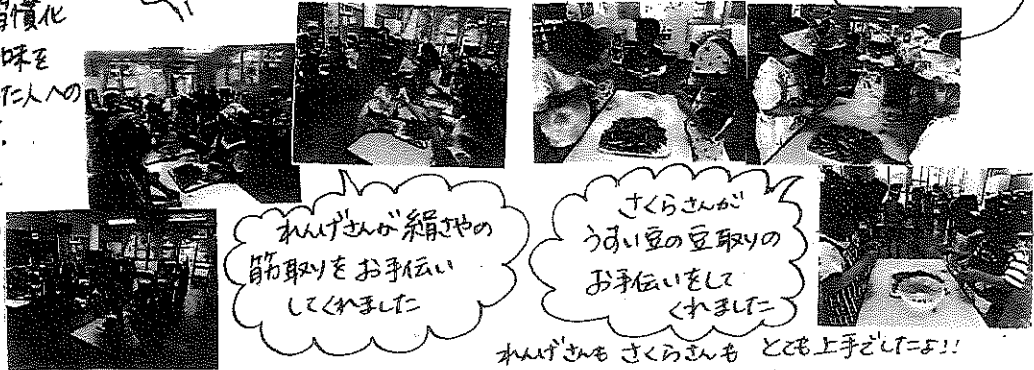 習慣化
味を
た人への
れんげさんが絹さやの
筋取りをお手伝い
してくれました
さくらさんが
うすい豆の豆取りの
お手伝いをして
くれました
れんげさんも さくらさんも とても上手でしたよ!!